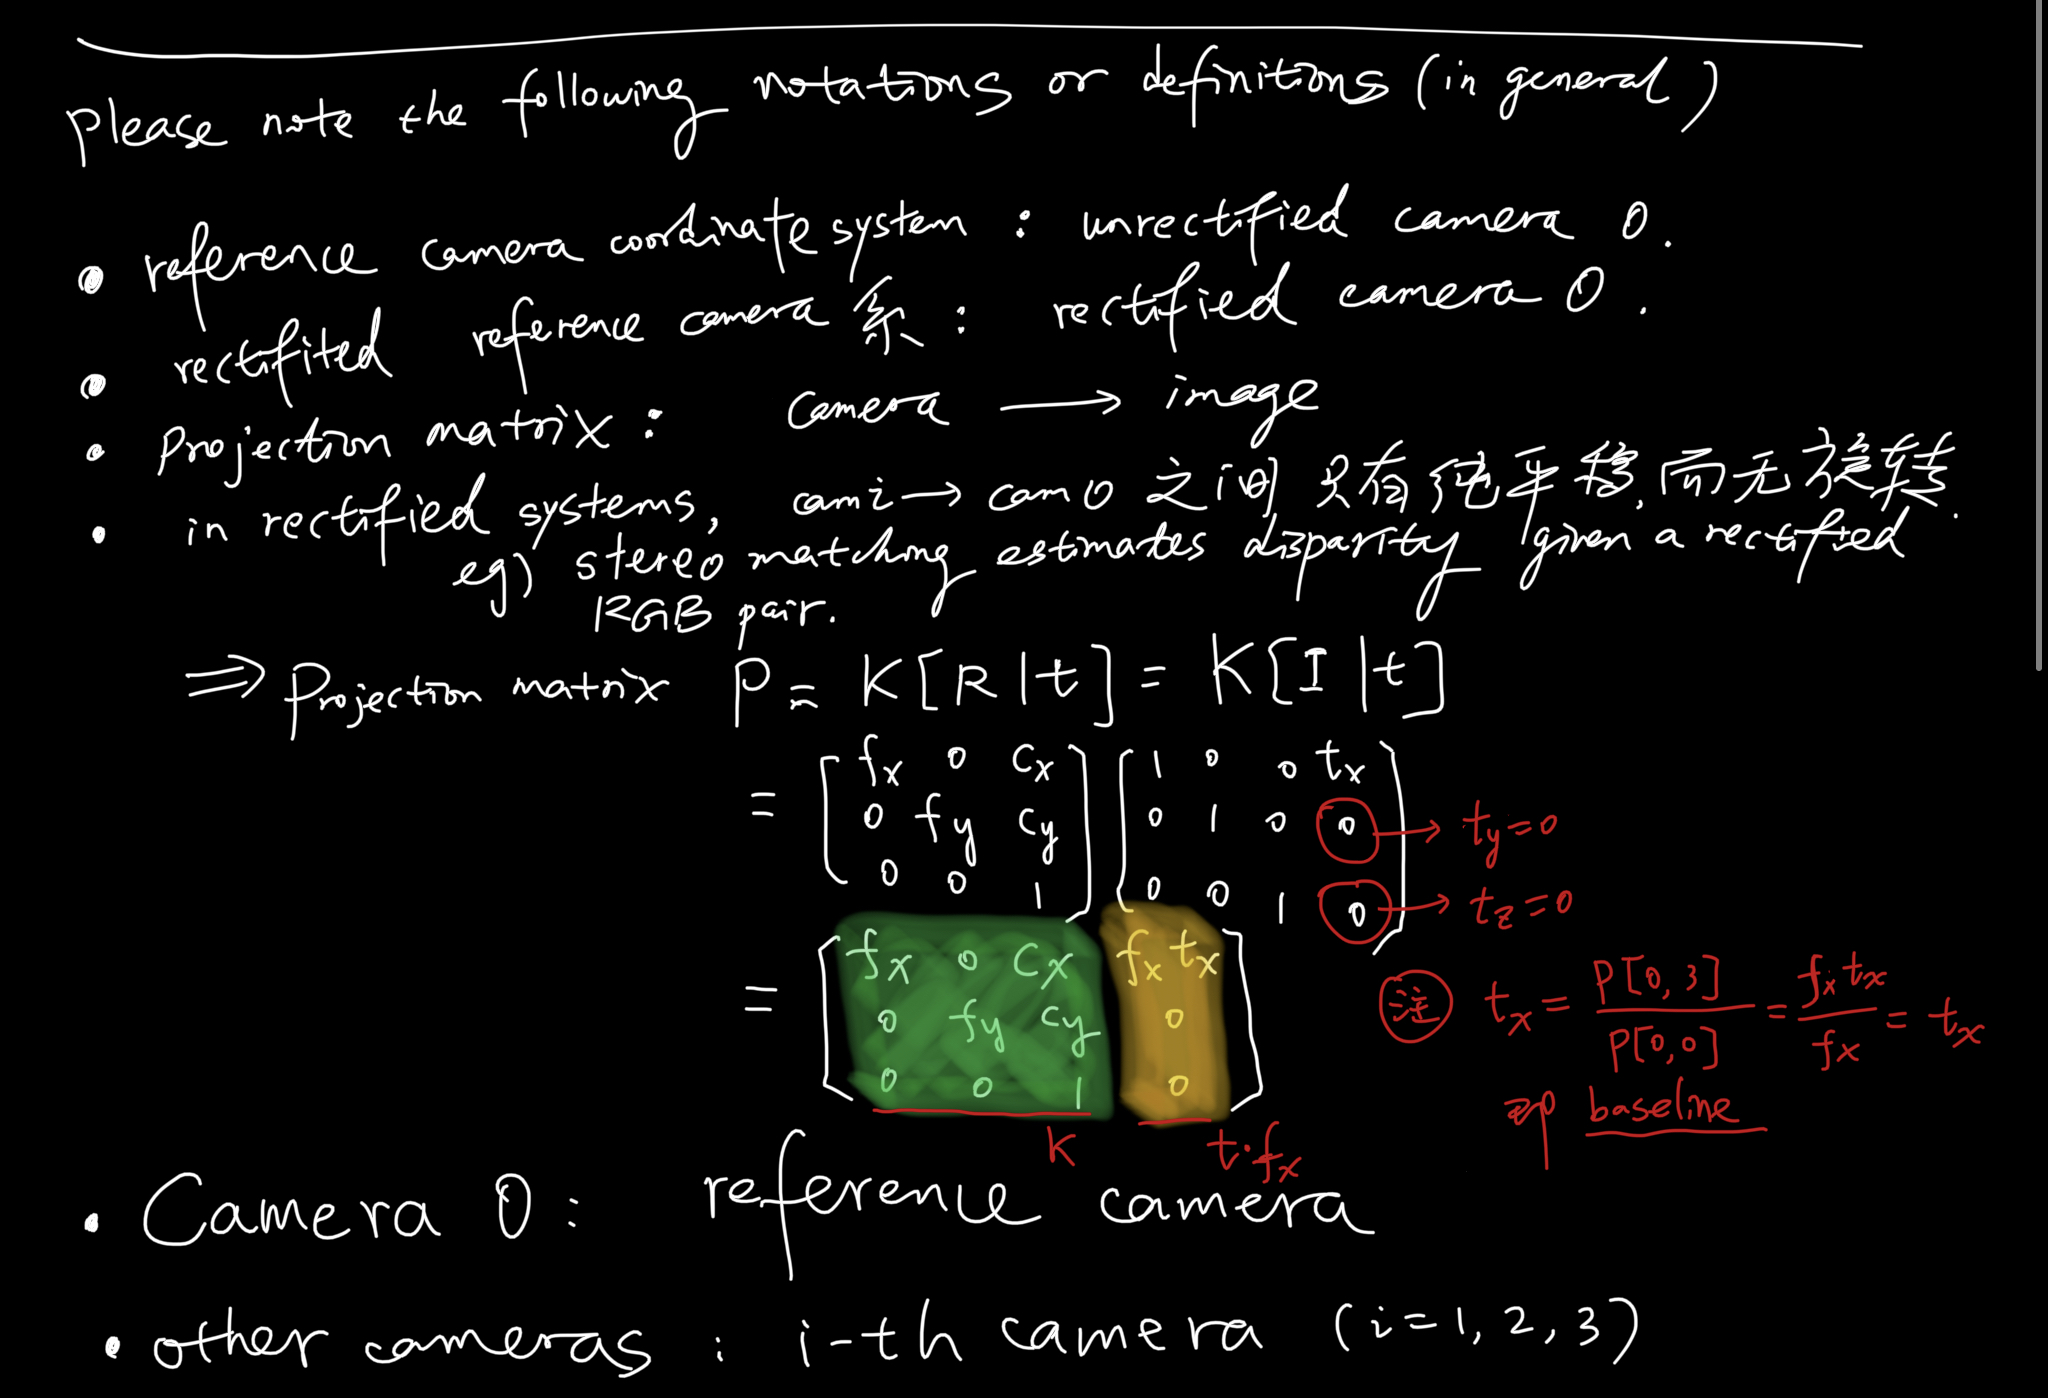 please note the following notations or definitions (in general)
• reference camera coordinate system : unrectified camera 0.
• rectifited reference camera 系 : rectified camera 0.
• Projection matrix : Camera → image
• in rectified systems, cam i → cam 0 之间只有纯平移,而无旋转.
eg) stereo matching estimates disparity given a rectified
RGB pair.
⇒ Projection matrix P = K[R|t] = K[I|t]
= [fx 0 cx; 0 fy cy; 0 0 1] [1 0 0 tx; 0 1 0 0; 0 0 1 0]
→ ty=0
→ tz=0
= [fx 0 cx fx tx; 0 fy cy 0; 0 0 1 0]
K t·fx
注 tx = P[0,3] / P[0,0] = fx tx / fx = tx
即 baseline
• Camera 0 : reference camera
• other cameras : i-th camera (i=1, 2, 3)